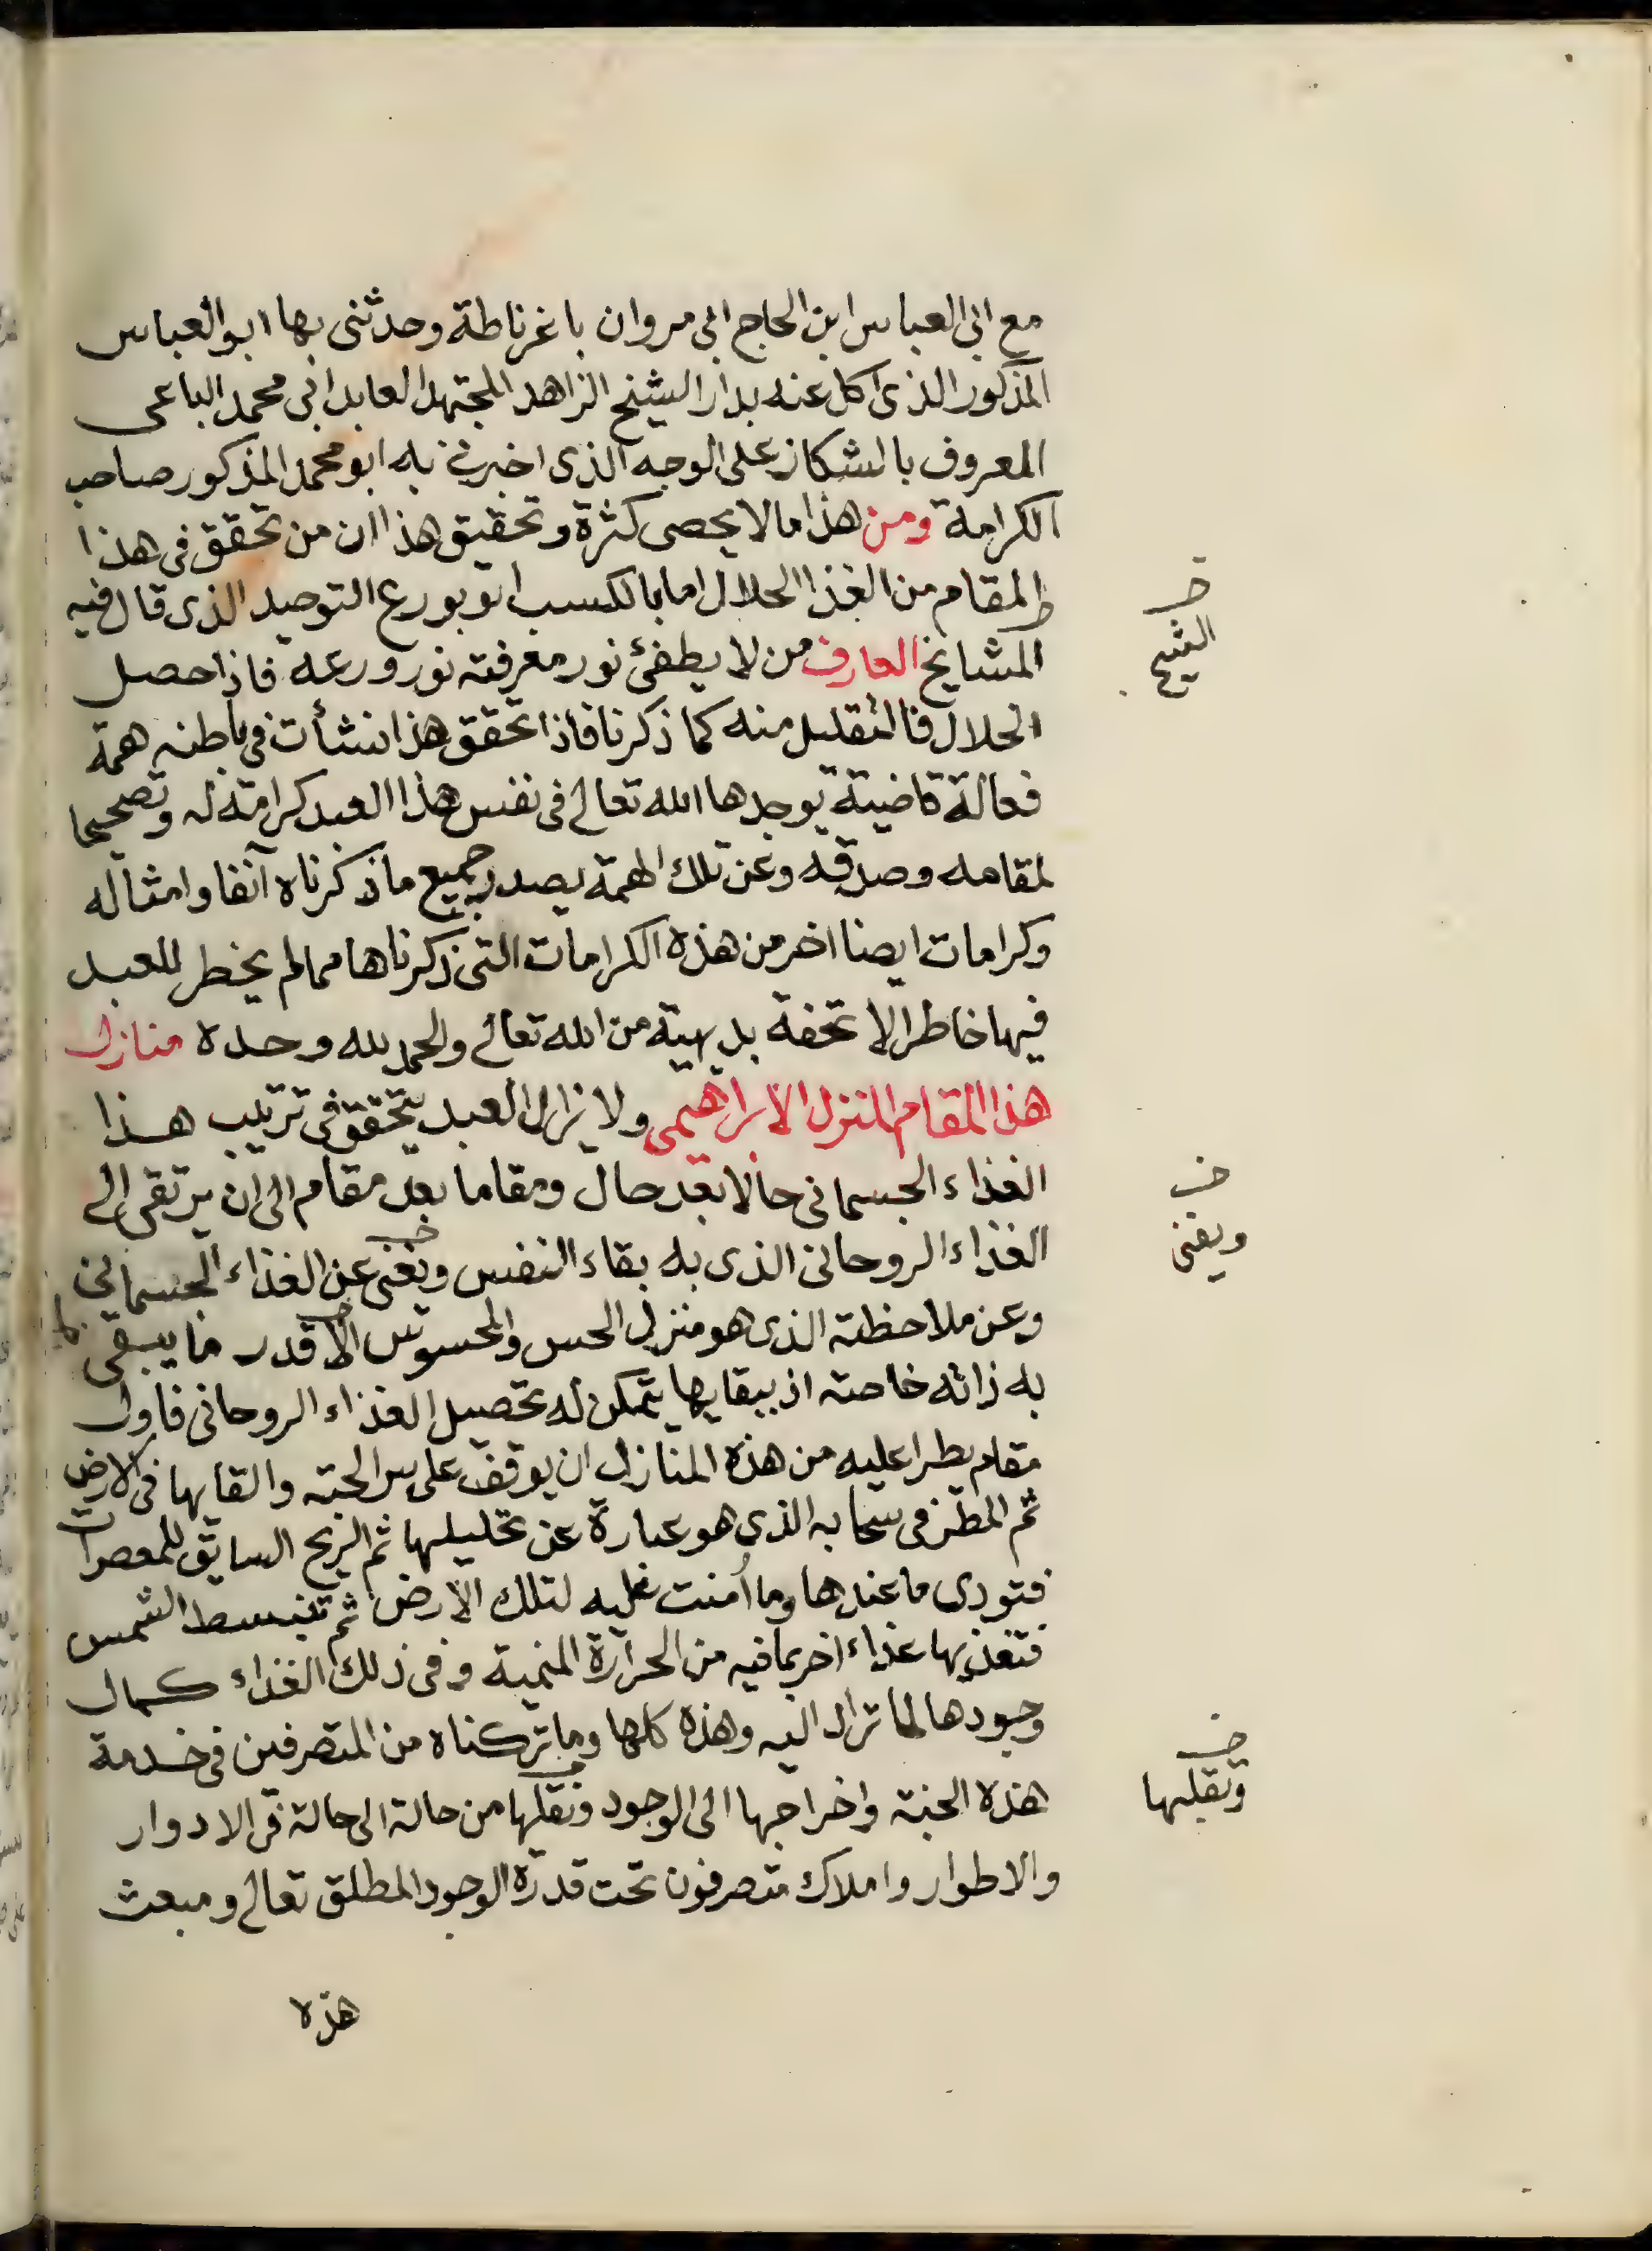 مع ابى العباس ابن الحاج ابى مروان باغرناطة وحدثنى بها ابو العباس
المذكور الذى آكل عنه بدار الشيخ الزاهد المجتهد العابد ابى محمد الباغى
المعروف بالشكاز على الوجه الذى اخبرنى به ابو محمد المذكور صاحب
الكرامة ومن هذا ما لا يحصى كثرة وتحقيق هذا ان من تحقق فى هذا
المقام من الغذا الحلال اما بالكسب او بورع التوحيد الذى قال فيه
المشايخ العارف من لا يطفئ نور معرفته نور ورعه فاذا حصل
الحلال فالتقليل منه كما ذكرنا فاذا تحقق هذا نشأت فى باطنه همة
فعالة قاضية يوجدها الله تعالى فى نفس هذا العبد كرامة له وتصحيحا
لمقامه وصدقه وعن تلك الهمة يصدر جميع ما ذكرناه آنفا وامثاله
وكرامات ايضا اخر من هذه الكرامات التى ذكرناها مما لم يخطر للعبد
فيها خاطر الا تحفة بديهية من الله تعالى والحمد لله وحده منازل
هذا المقام المنزل الابراهيمى ولا يزال العبد يتحقق فى ترتيب هذا
الغذاء الجسمانى حالا بعد حال ومقاما بعد مقام الى ان يرتقى الى
الغذاء الروحانى الذى به بقاء النفس ويغنى عن الغذاء الجسمانى
وعن ملاحظته الذى هو منزل الحس والمحسوس الا قدر ما يبقى
به ذاته خاصة اذ ببقايها يتمكن له تحصيل الغذاء الروحانى فاول
مقام يطرا عليه من هذه المنازل ان يوقف على سر الحبة والقايها فى الارض
ثم المطر فى سحابه الذى هو عبارة عن تحليلها ثم الريح السايق للمعصرات
فتودى ما عندها وما أمنت عليه لتلك الارض ثم تنبسط الشمس
فتغذيها غذاء اخر بما فيه من الحرارة المنمية وفى ذلك الغذاء كمال
وجودها لما تراد اليه وهذه كلها وما تركناه من المتصرفين فى خدمة
هذه الحبة واخراجها الى الوجود ونقلها من حالة الى حالة فى الادوار
والاطوار واملاك متصرفون تحت قدرة الوجود المطلق تعالى ومبعث
هذه
خ
الشيح
خ
ويفنى
خ
وتقلبها